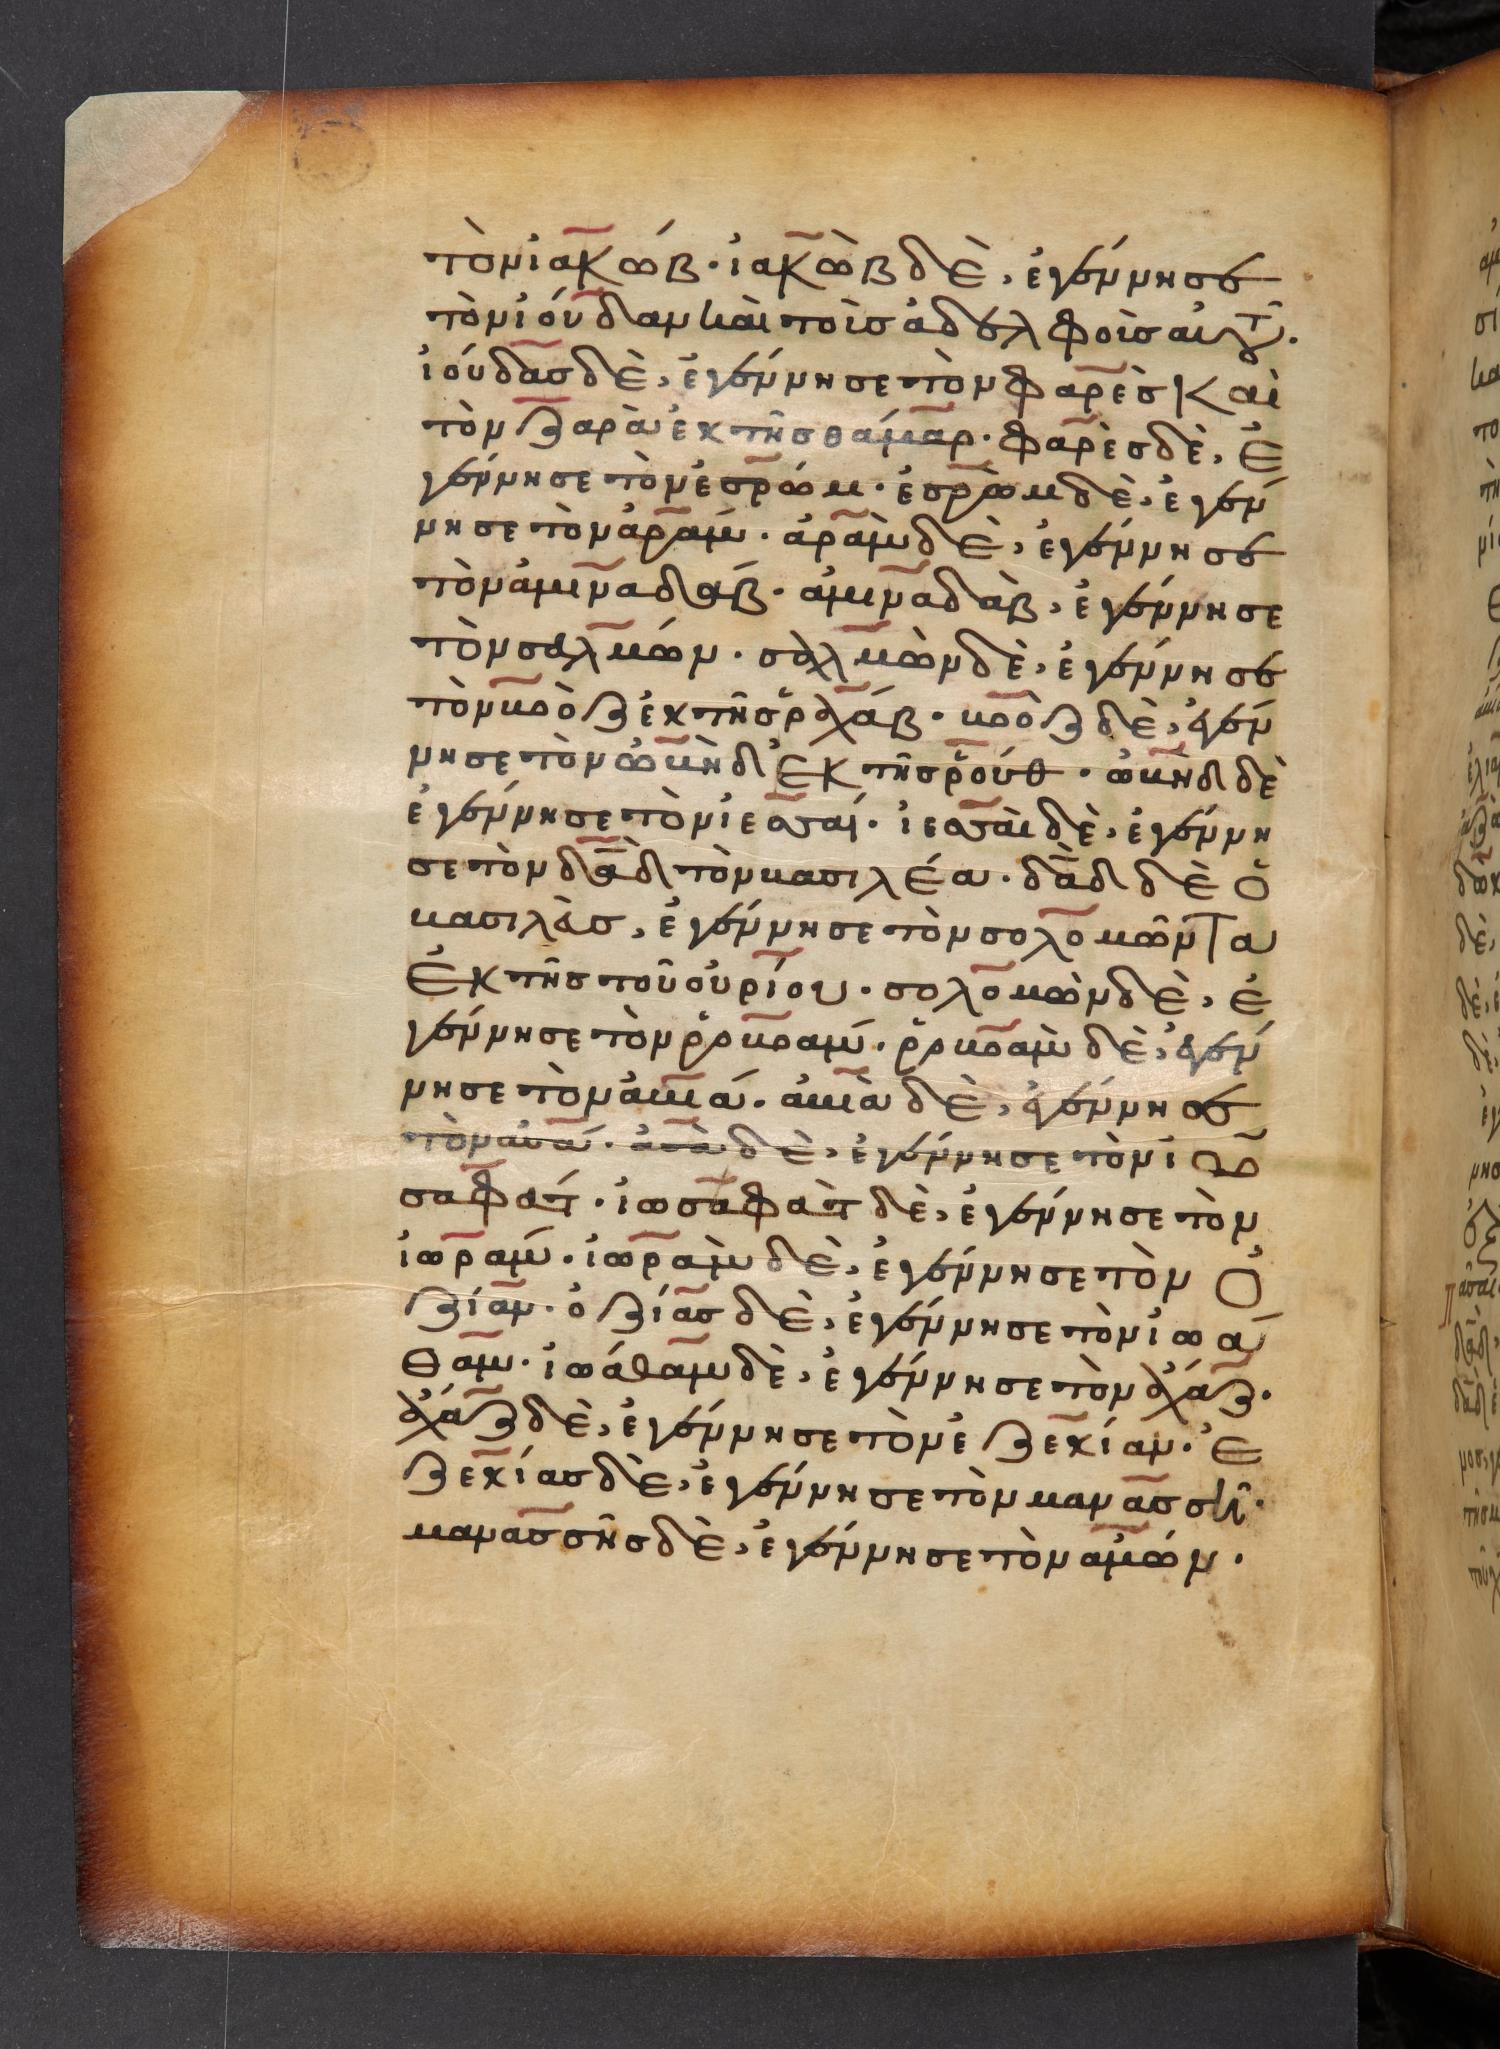 τὸν ἰακώβ· ἰακὼβ δὲ, ἐγέννησε
τὸν ἰούδαν καὶ τοὺς ἀδελφοὺς αὐτοῦ·
ἰούδας δὲ, ἐγέννησε τὸν φαρὲς καὶ
τὸν ζαρὰ ἐκ τῆς θάμαρ· φαρὲς δὲ, ἐ
γέννησε τὸν ἐσρώμ· ἐσρὼμ δὲ, ἐγέν
νησε τὸν ἀράμ· ἀρὰμ δὲ, ἐγέννησε
τὸν ἀμιναδάβ· ἀμιναδὰβ, ἐγέννησε
τὸν σαλμών· σαλμὼν δὲ, ἐγέννησε
τὸν βοὸζ ἐκ τῆς ῥαχάβ· βοὸζ δὲ, ἐγέν
νησε τὸν ὠβὴδ ἐκ τῆς ῥούθ· ὠβὴδ δὲ
ἐγέννησε τὸν ἰεσσαί· ἰεσσαὶ δὲ, ἐγέννη
σε τὸν δαδ τὸν βασιλέα· δαδ δὲ ὁ
βασιλεὺς, ἐγέννησε τὸν σολομῶντα
ἐκ τῆς τοῦ οὐρίου· σολομὼν δὲ, ἐ
γέννησε τὸν ῥοβοάμ· ῥοβοὰμ δὲ, ἐγέν
νησε τὸν ἀβιά· ἀβιὰ δὲ, ἐγέννησε
τὸν ἀσά· ἀσὰ δὲ, ἐγέννησε τὸν ἰω
σαφάτ· ἰωσαφὰτ δὲ, ἐγέννησε τὸν
ἰωράμ· ἰωρὰμ δὲ, ἐγέννησε τὸν ὀ
ζίαν· ὀζίας δὲ, ἐγέννησε τὸν ἰωά
θαμ· ἰωάθαμ δὲ, ἐγέννησε τὸν ἀχάζ·
ἀχάζ δὲ, ἐγέννησε τὸν ἐζεκίαν· ἐ
ζεκίας δὲ, ἐγέννησε τὸν μανασσῆ·
μανασσῆς δὲ, ἐγέννησε τὸν ἀμών·